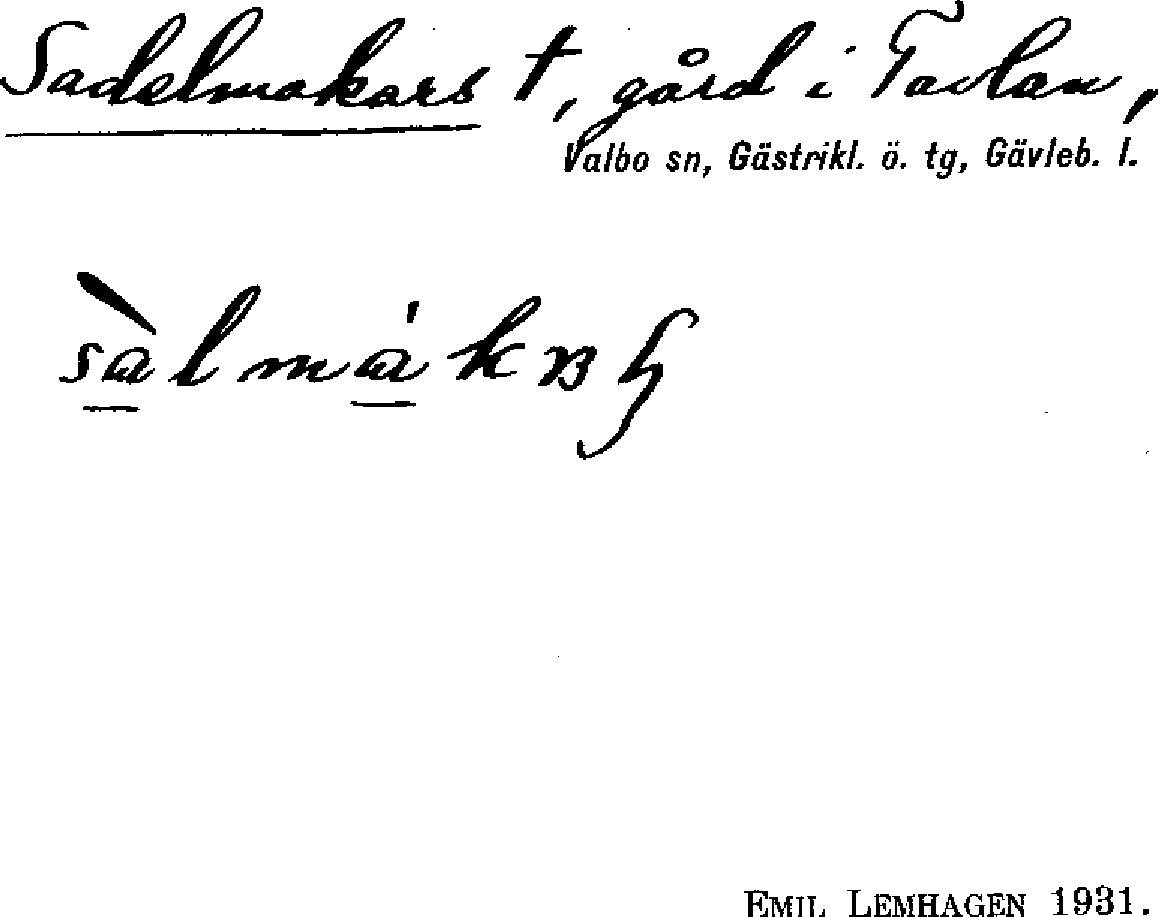 Sadelmakars †, gård i Tavlan,
Valbo sn, Gästrikl. ö. tg, Gävleb. l.
EMIL LEMHAGEN 1931.